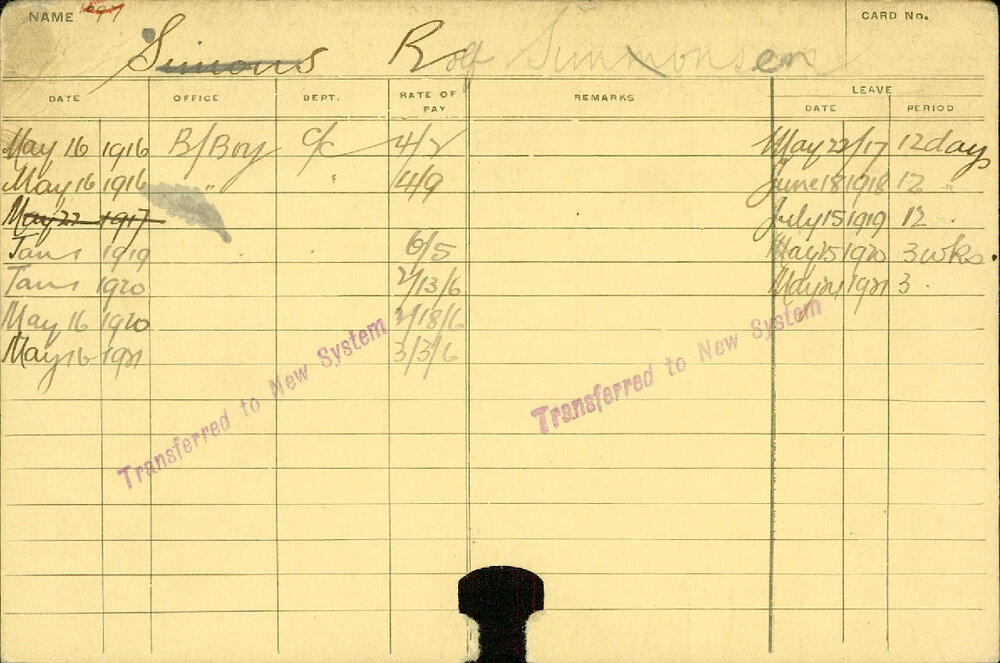 NAME 1697 CARD No.
Simons Rolf Simmonsen
DATE OFFICE DEPT. RATE OF PAY REMARKS LEAVE DATE PERIOD
May 16 1916 B/Boy C/C 4/2 May 22/17 12 days
May 16 1916 " " 4/9 June 18 1918 12 "
May 22 1917 July 15 1919 12 .
Jan 1 1919 . . 6/5 May 15 1920 3 wks.
Jan 1 1920 2/13/6 May 21 1921 3 .
May 16 1920 2/18/6
May 16 1921 3/3/6
Transferred to New System
Transferred to New System